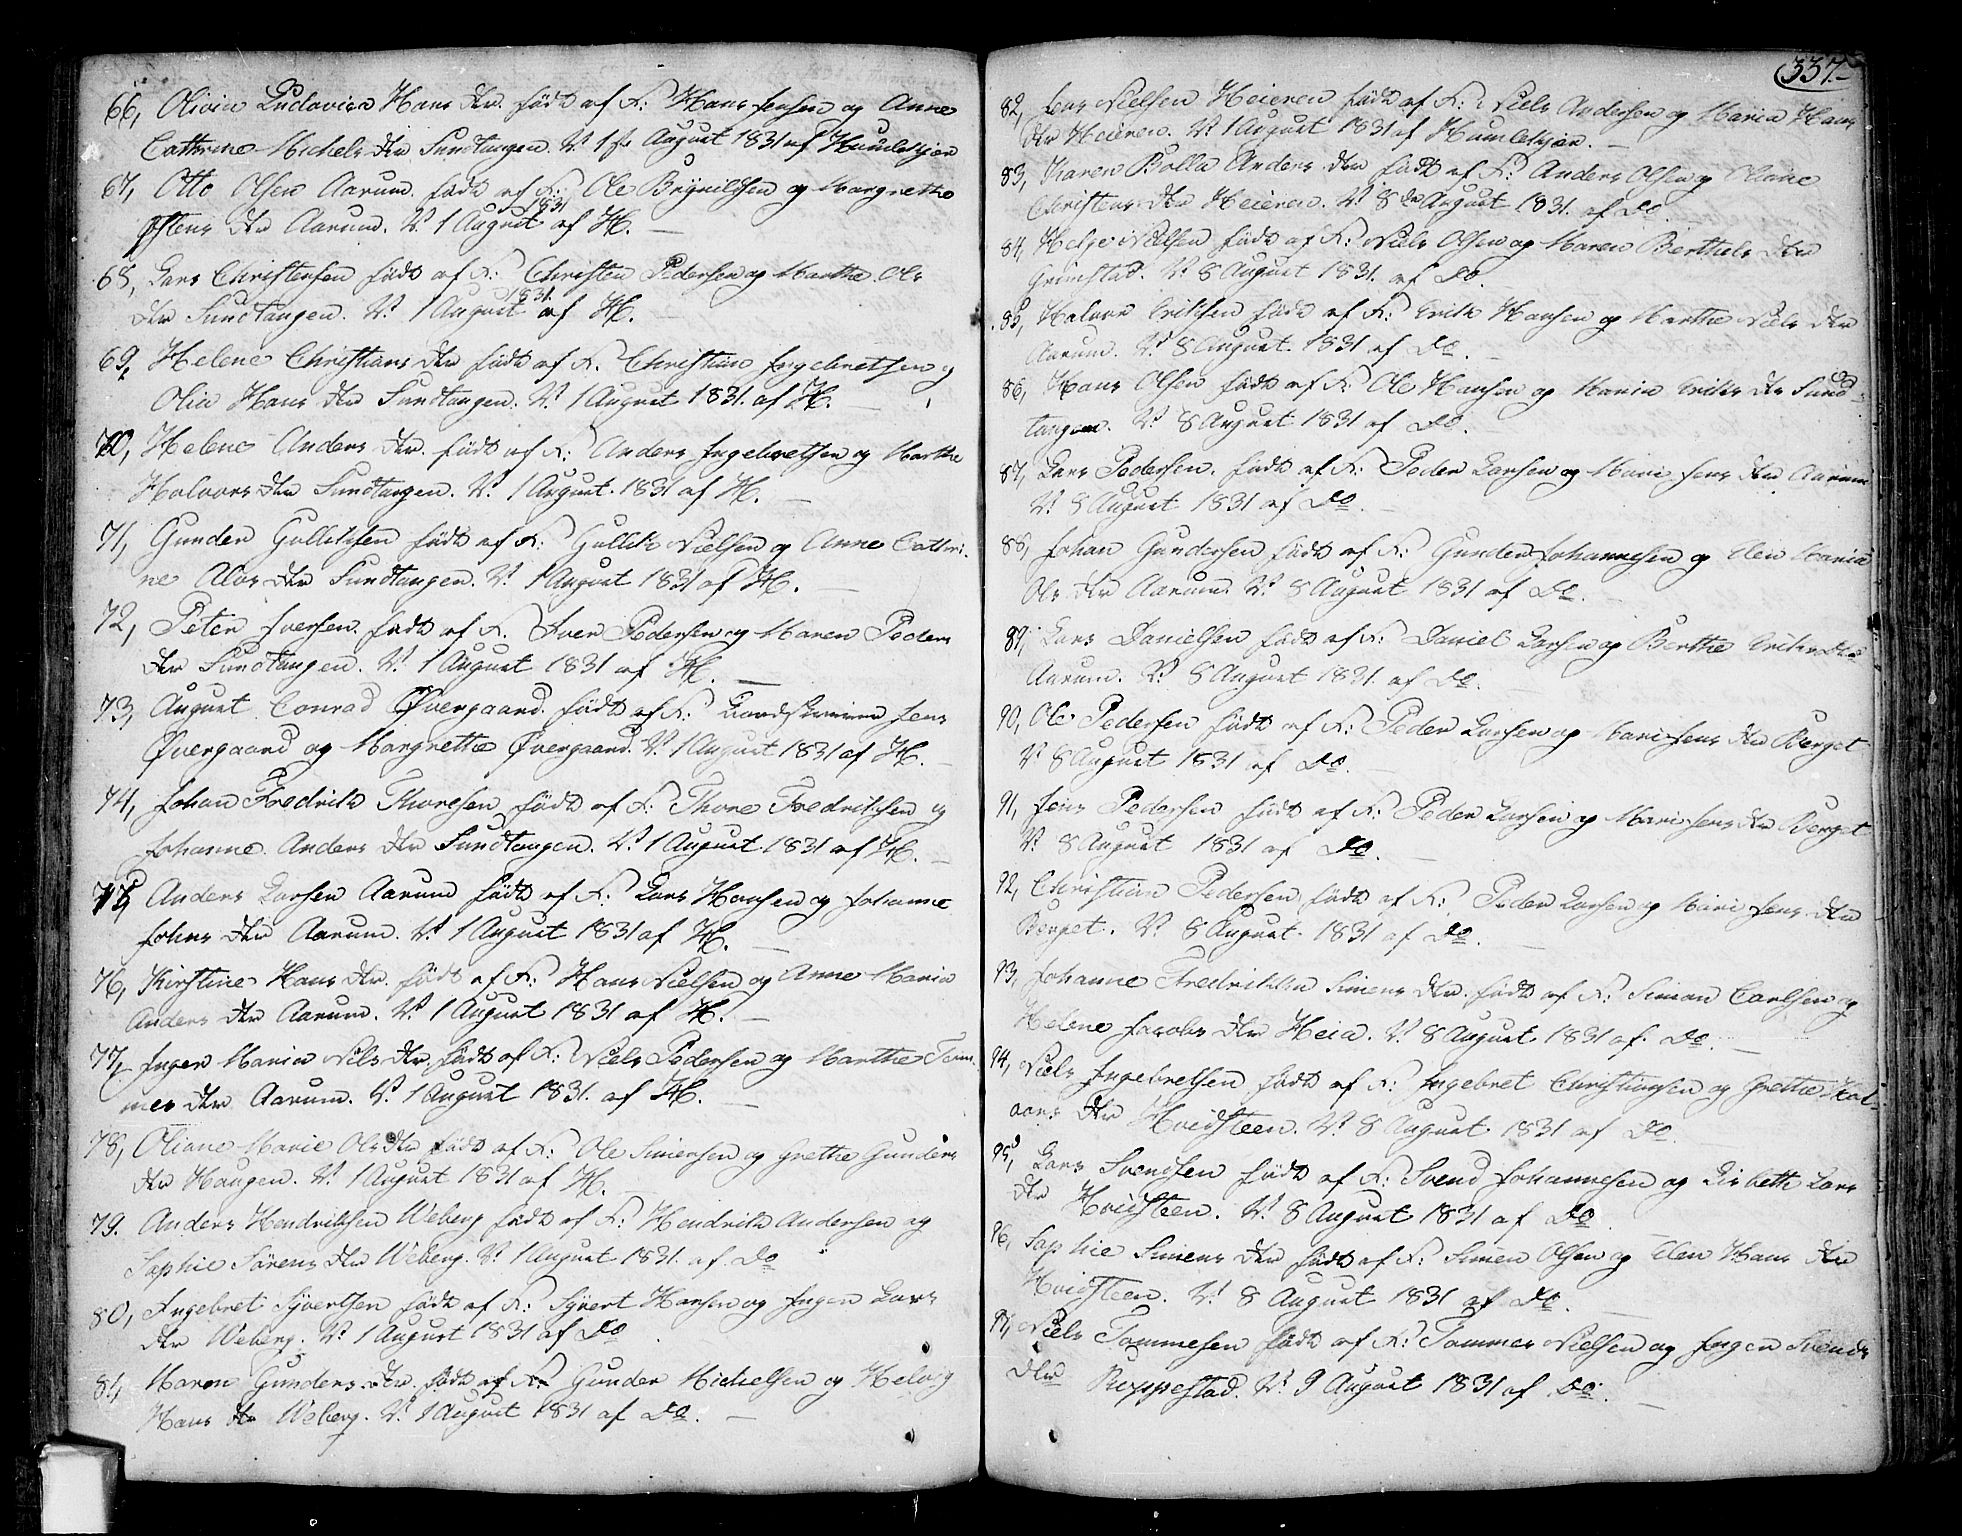 66, Olivia Ludovica Hans dtr. født af F: Hans Jensen og Anne
Cathrine Michels dtr Sundtangen. V: 1ste August 1831 af Humlekjær
67, Otto Olsen Aarum. født af F: Ole Brynildsen og Margrethe
Østens dtr Aarum. V: 1 August 1831 af H.
68, Lars Christensen født af F: Christen Pedersen og Marthe Ols
dtr Sundtangen. V: 1 August 1831. af H.
69, Helene Christians dtr født af F. Christian Ingebretsen og
Olia Hans dtr Sundtangen. V: 1 August 1831. af H.
70, Helene Anders dtr. født af F: Anders Ingebretsen og Marthe
Halvors dtr Sundtangen. V: 1 August. 1831 af H.
71, Gunder Gulliksen født af F: Gullik Nielsen og Anne Cathri-
ne Alos dtr Sundtangen. V: 1 August 1831 af H.
72, Peter Iversen. født af F. Iver Pedersen og Maren Peders
dtr Sundtangen. V: 1 August 1831 af H.
73, August Conrad Øvergaard. født af F: Jens
Øvergaard og Margrethe Øvergaard. V: 1 August 1831 af H.
74, Johan Fredrik Thoresen født af F: Thore Fredriksen og
Johanne Anders dtr Sundtangen. V: 1 August 1831 af H.
75, Anders Larsen Aarum født af F: Lars Hansen og Johanne
Johns dtr Aarum. V: 1 August 1831 af H.
76, Kirstine Hans dtr. født af F: Hans Nielsen og Anne Maria
Anders dtr Aarum. V: 1 August 1831 af H.
77, Ingen Maria Niels dtr. født af F: Niels Pedersen og Marthe Tom
mes dtr Aarum. V: 1 August 1831. af H.
78, Oliane Marie Ols dtr født af F: Ole Simensen og Grethe Gunders
dtr Haugen. V: 1 August 1831 af H.
79. Anders Hendriksen Weberg født af F: Hendrik Andersen og
Sophie Sørens dtr Weberg. V: 1 August 1831. af Do
80, Ingebret Syvertsen født af F: Syvert Hansen og Ingen Lars
dtr Weberg. V: 1 August 1831 af Do
81, Maren Gunders dtr. født af F: Gunder Michelsen og Helvig
Hans dtr Weberg. V: 1 August 1831 af Do.
337.
82, Lars Nielsen Heieren født af F: Niels Andersen og Maria Hans
dtr Heieren. V: 1 August 1831 af Humlekjær.
83, Karen Bolla Anders dtr født af F: Anders Olsen og Oliane
Christens dtr Heieren. V: 8de August 1831. af Do.
84, Helge Nielsen født af F: Niels Olsen og Maren Berthels dtr
Grimstad. V: 8 August 1831. af Do.
85, Halvor Eriksen født af F: Erik Hansen og Marthe Niels dtr
Aarum. V: 8 August. 1831 af Do.
86, Hans Olsen født af F: Ole Hansen og Maria Eriks dtr Sund-
tangen. V: 8 August 1831 af Do.
87, Lars Pedersen. født af F: Peder Larsen og Mari Jens dtr Aarum
V: 8 August 1831 af Do.
88, Johan Gundersen født af F: Gunder Johannesen og Elen Maria
Ols dtr Aarum. V: 8 August 1831 af Do.
89, Lars Danielsen født af F: Daniel Larsen og Berthe Eriks dtr
Aarum. V: 8 August 1831. af Do.
90, Ole Pedersen født af F: Peder Larsen og Mari Jens dtr Berget
V: 8 August 1831 af Do.
91, Jens Pedersen født af F: Peder Larsen og Mari Jens dtr Berget
V: 8 August 1831 af Do.
92, Christian Pedersen født af F: Peder Larsen og Mari Jens dtr
Berget. V: 8 August. 1831 af Do.
93, Johanne Fredrikke Simens dtr. født af F: Simon Carlsen og
Helene Jacobs dtr Heia. V: 8 August 1831 af Do.
94, Niels Ingebretsen født af F: Ingebret Christiansen og Grethe Hal-
vors dtr Hvidsteen. V: 8 August 1831 af Do
95, Lars Svendsen født af F: Svend Johannesen og Lisbeth Lars
dtr Hvidsteen. V: 8 August 1831 af Do
96, Sophie Simens dtr født af F: Simen Olsen og Elen Hans dtr
Hvidsteen. V: 8 August 1831 af Do.
97, Niels Tommesen født af F: Tommes Nielsen og Ingen Svends
dtr Ruppestad. V: 9 August 1831 af Do.